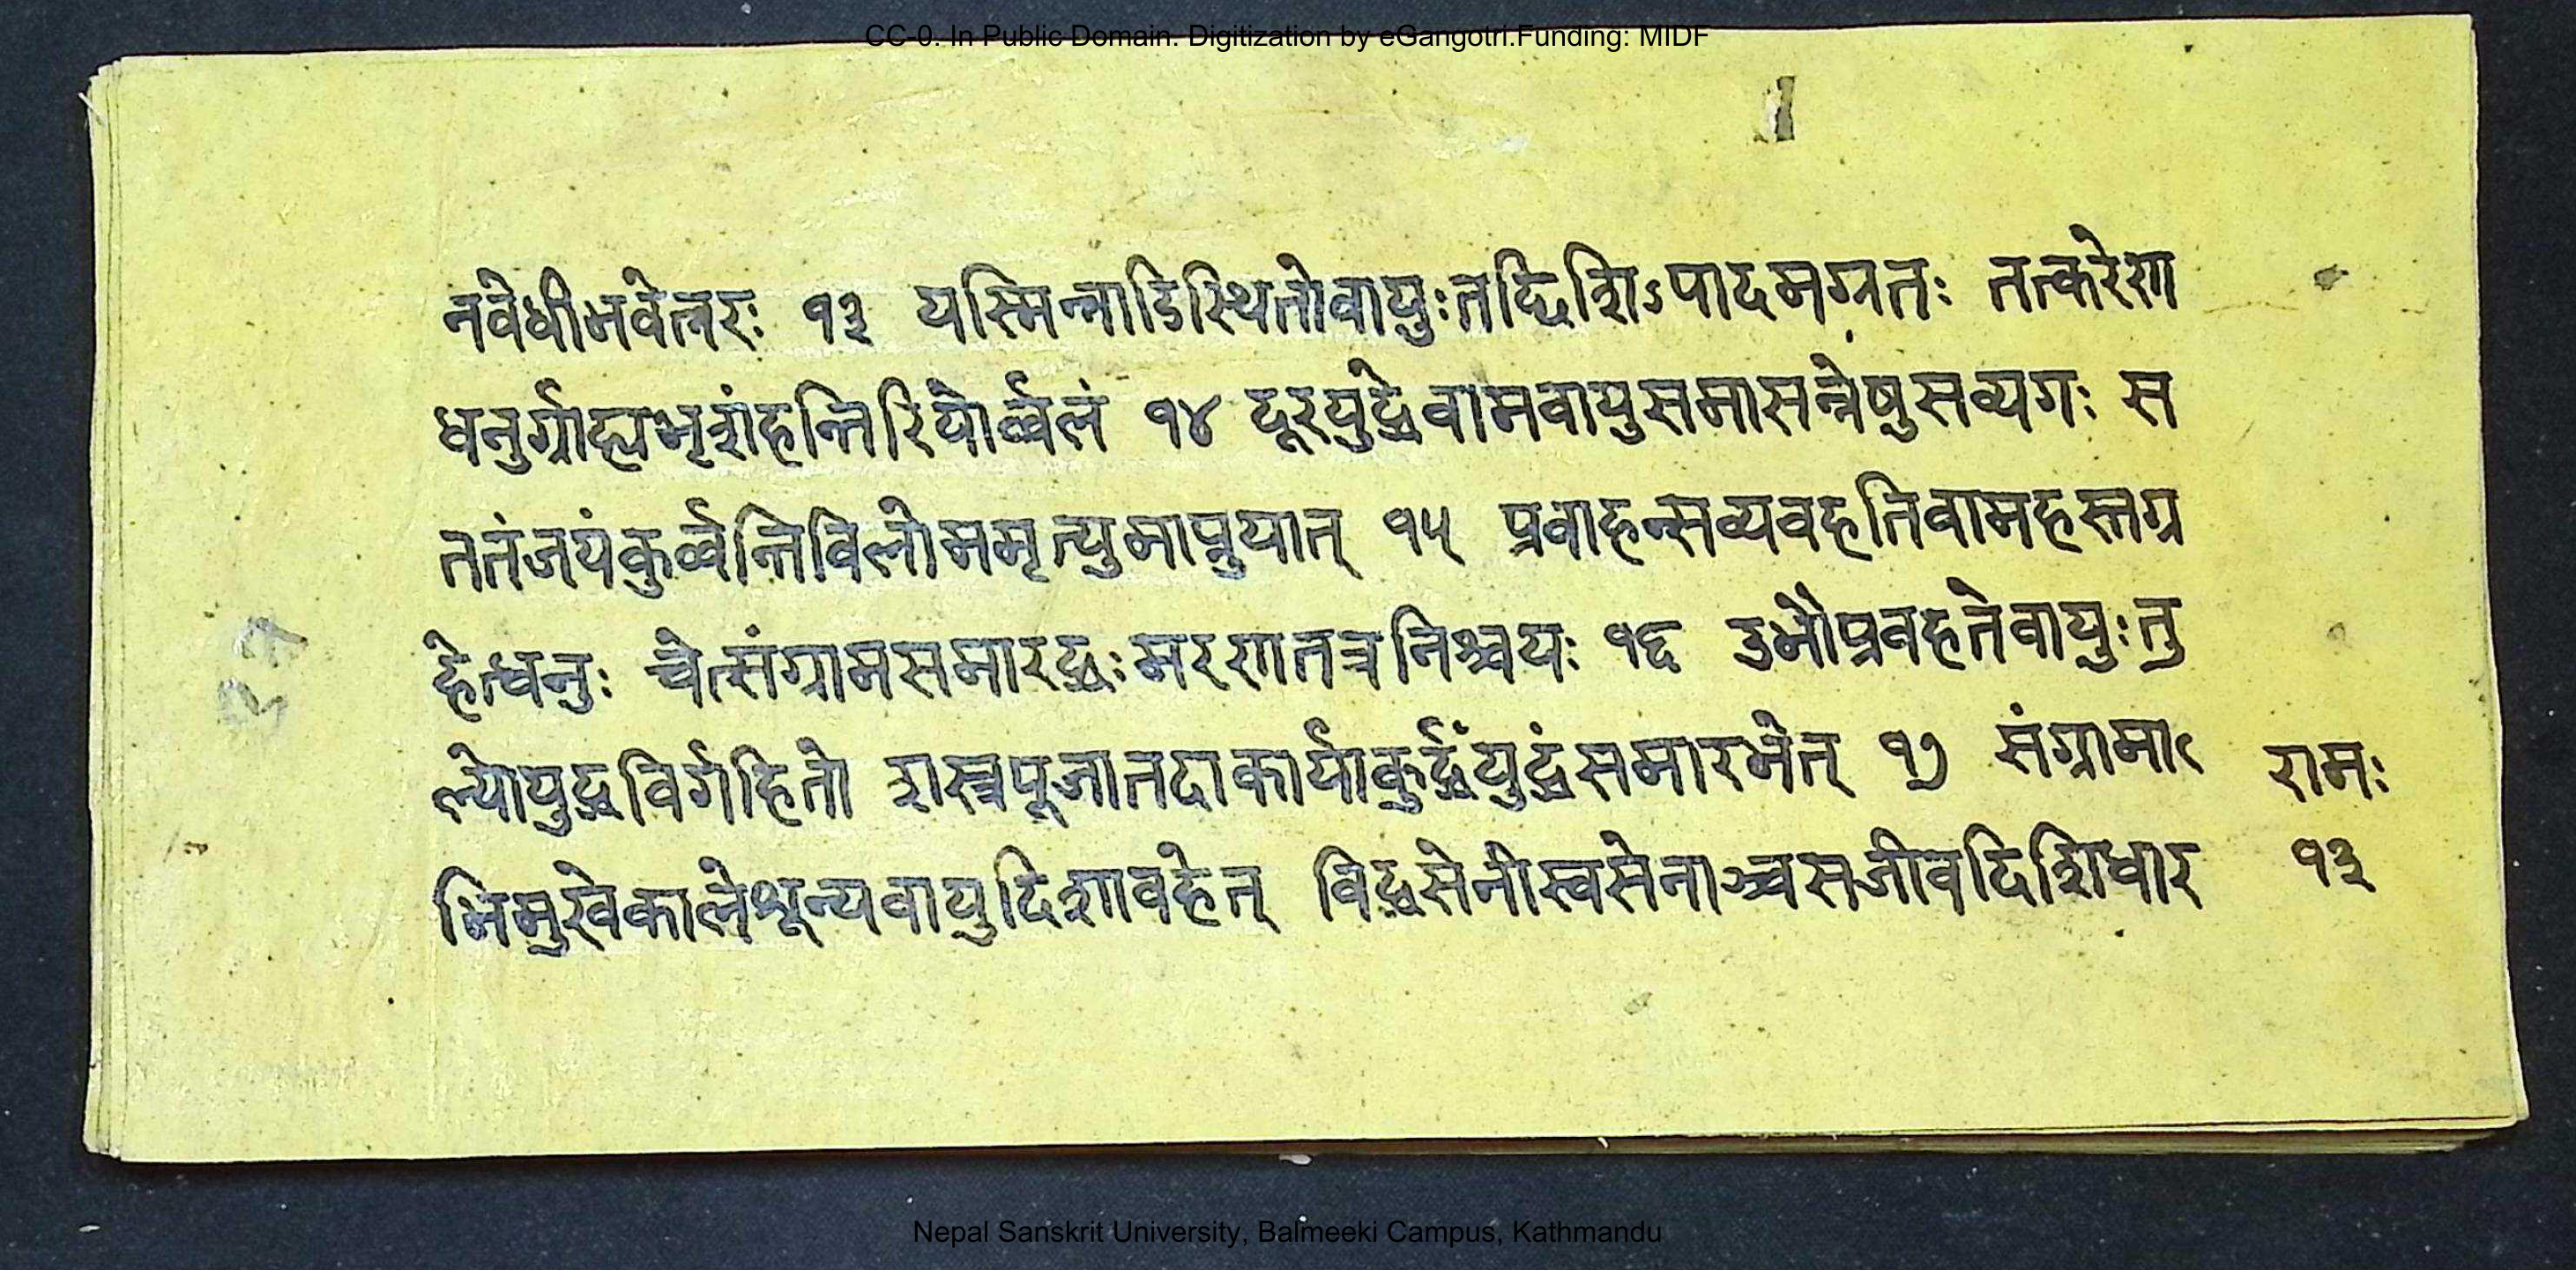 CC-0. In Public Domain. Digitization by eGangotri.Funding: MIDF
नवेधीभवेन्नरः १३ यस्मिन्नाडिस्थितोवायुःतद्दिशिऽपादमग्रतः तत्करेण
धनुर्ग्राह्यभृशंहन्तिरिपोर्व्वलं १४ दूरयुद्धेवामवायुसमासन्नेषुसव्यगः स
ततंजयंकुर्व्वन्तिविलोममृत्युमाप्नुयात् १५ प्रवाहन्सव्यवहतिवामहस्तग्र
हेत्धनुः चेत्संग्रामसमारद्धःमरणतत्रनिश्चयः १६ उभौप्रवहतेवायुःतु
ल्योयुद्धविर्गहितो शस्त्रपूजातदाकार्याकुर्द्धंयुद्धंसमारभेत् १७ संग्रामा
रामः
भिमुखेकालेशून्यवायुदिशावहेत् विद्धसेनीस्वसेनाञ्चसजीवदिशिधार
१३
Nepal Sanskrit University, Balmeeki Campus, Kathmandu